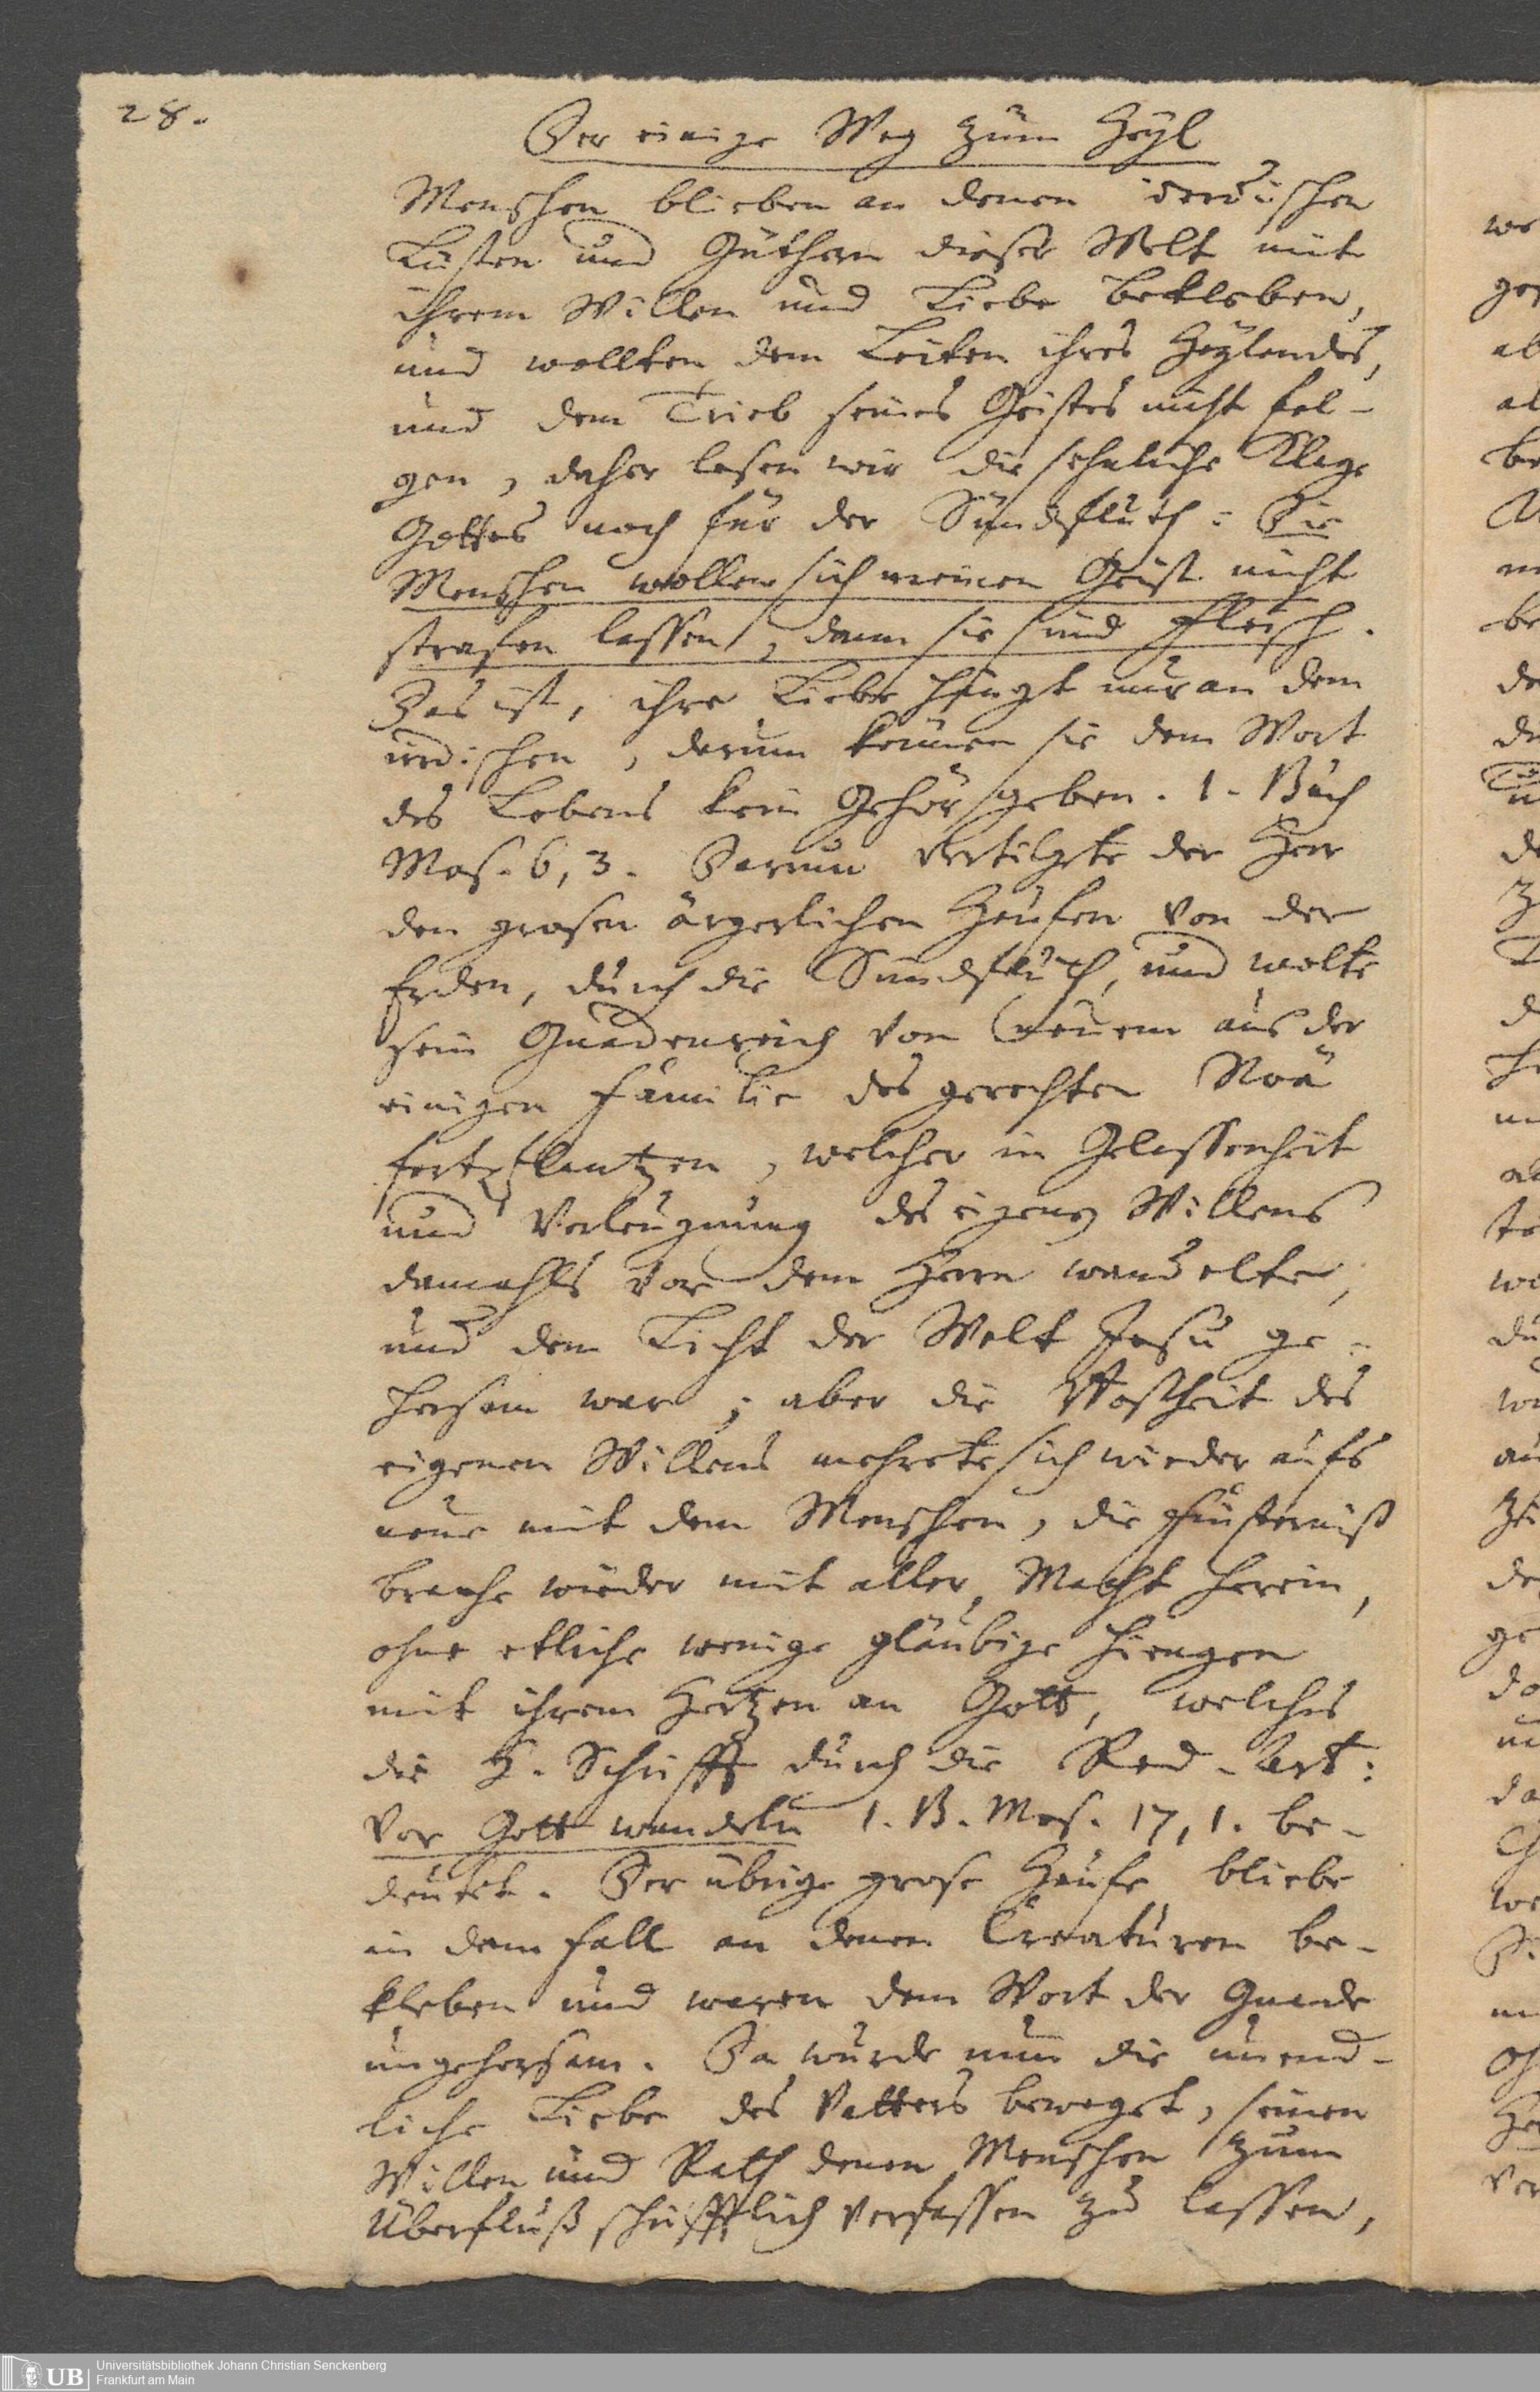 28.
Der einige Weg zum Heyl
Menschen blieben an denen irrdischen
Lüsten und Güthern dieser Welt mit
ihrem Willen und Liebe bekleben,
und wollten dem Leiten ihres Heylandes,
und dem Trieb seines Geistes nicht fol-
gen, daher lesen wir die sehnliche Klage
Gottes noch für der Sündfluth: Die
Menschen wollen sich meinen Geist nicht
strafen lassen, dann sie sind Fleisch.
Das ist, ihre Liebe hängt nur an dem
irrdischen, darum können sie dem Wort
des Lebens kein Gehör geben. 1. Buch
Mos. 6, 3. Darum vertilgte der Herr
den grosen ärgerlichen Haufen von der
Erden, durch die Sündfluth, und wolte
sein Gnadenreich von neuem aus der
einigen Familie des gerechten Noä
fortpflantzen, welcher in Gelassenheit
und Verleugnung des eigenen Willens
damahls vor dem Herrn wandelte,
und dem Licht der Welt Jesu ge-
horsam war; aber die Bosheit des
eigenen Willens mehrete sich wieder aufs
neue mit dem Menschen, die Finsterniß
brache wieder mit aller Macht herein,
ohne etliche wenige gläubige hiengen
mit ihrem Hertzen an Gott, welches
die H. Schrifft durch die Red-Art:
Vor Gott wandeln 1. B. Mos. 17, 1. be-
deutet. Der übrige grose Haufe bliebe
in dem Fall an denen Creaturen be-
kleben und waren dem Wort der Gnade
ungehorsam. Da wurde nun die unend-
liche Liebe des Vatters beweget, seinen
Willen und Rath denen Menschen zum
Überfluß schrifftlich verfassen zu lassen,
UB Universitätsbibliothek Johann Christian Senckenberg
Frankfurt am Main